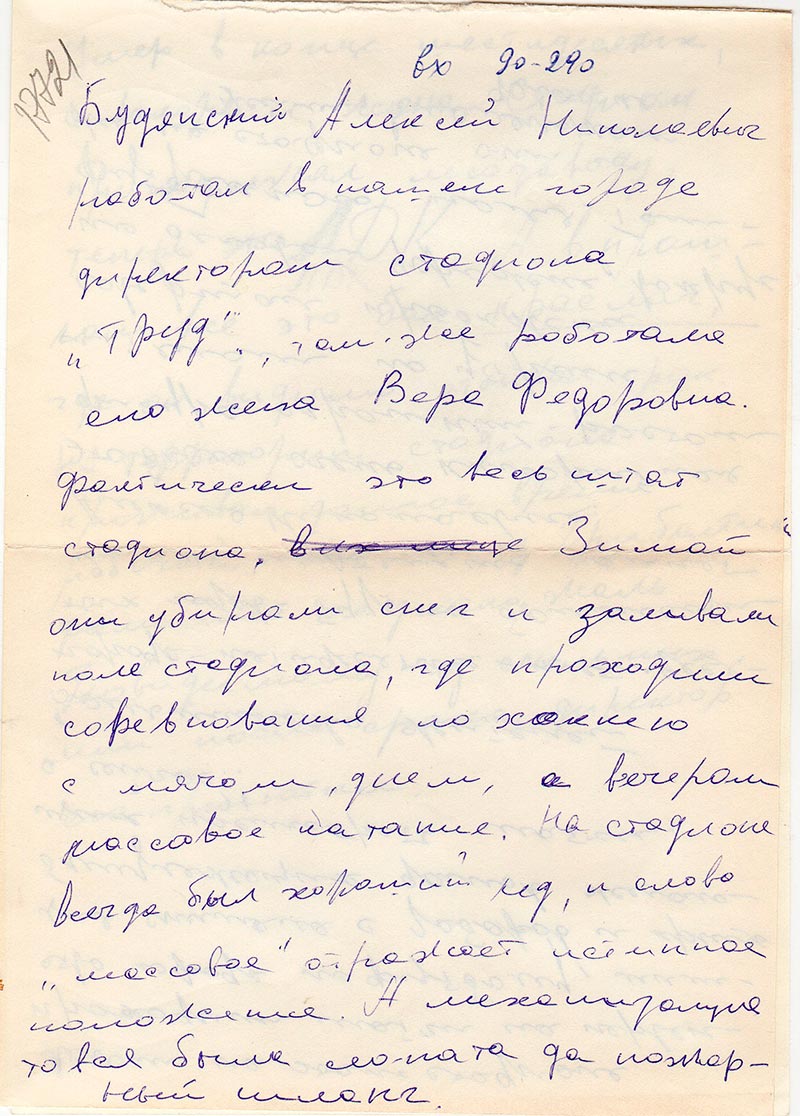 вх 90-290
17721
Будянский Алексей Николаевич
работал в нашем городе
директором стадиона
"Труд", там же работала
его жена Вера Федоровна.
Фактически это весь штат
стадиона. Зимой
они убирали снег и заливали
поле стадиона, где проходили
соревнования по хоккею
с мячом, днем, а вечером
массовое катание. На стадионе
всегда был хороший лед, и слово
"массовое" отражает истинное
положение. А механизация
то вся была лопата да пожар-
ный шланг.